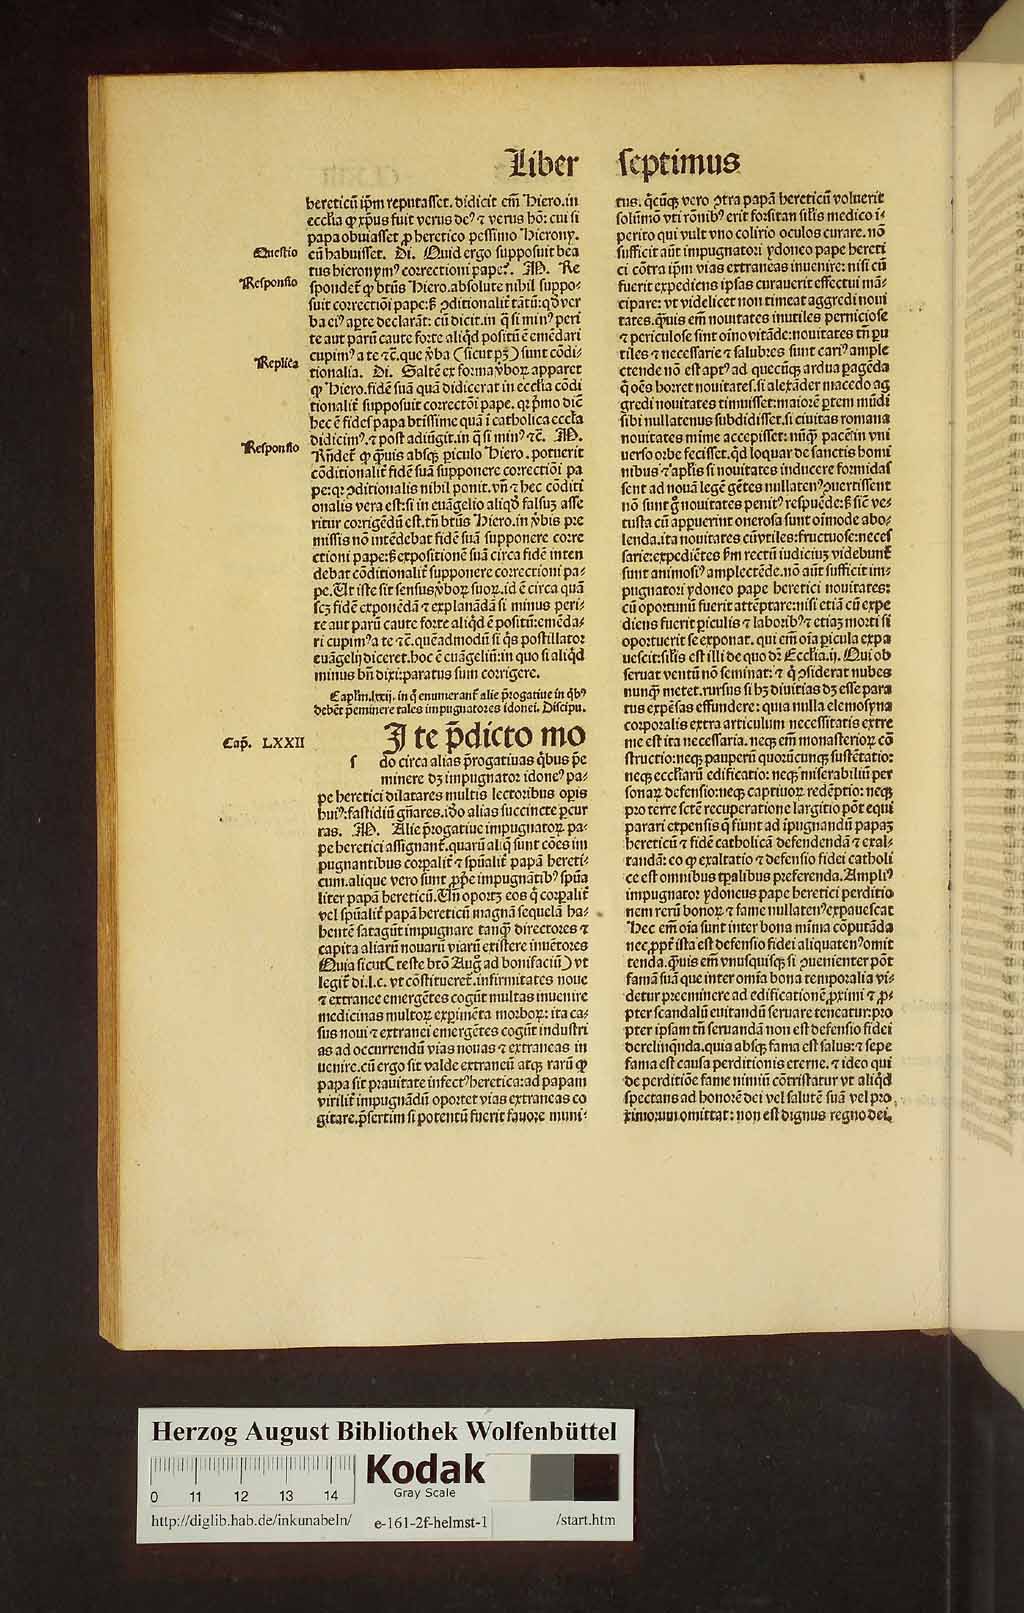 Liber septimus
hereticū ip̄m reputasset. didicit em̄ Hiero. in
eccl̄ia ꝙ xp̄us fuit verus deꝰ ⁊ verus hō: cui si
papa obuiasset ꝓ heretico pessimo Hierony.
Questio
cū habuisset. Di. Quid ergo supposuit bea
tus hieronymꝰ correctioni pape? M. Re
Responsio
spondet̄ ꝙ btūs Hiero. absolute nihil suppo-
suit correctiōi pape: sꝫ ꝯditionalit̄ tātū: qđ ver
ba eiꝰ aꝑte declarāt: cū dicit. in q̄ si minꝰ peri
te aut parū caute forte aliqđ positū ē emēdari
cupimꝰ a te ⁊c̄. que v̄ba (sicut pꝫ) sunt cōdi-
Replica
tionalia. Di. Saltē ex forma v̄boꝝ apparet
ꝙ Hiero. fidē suā quā didicerat in eccl̄ia cōdi
tionalit̄ supposuit correctōi pape. qꝛ p̄mo dic̄
hec ē fides papa btīssime quā ī catholica eccl̄a
didicimꝰ. ⁊ post adiūgit. in q̄ si minꝰ ⁊c̄. M.
Responsio
Rn̄det̄ ꝙ q̄uis absqꝫ ꝑiculo Hiero. potuerit
cōditionalit̄ fidē suā supponere correctiōi pa
pe: qꝛ ꝯditionalis nihil ponit. vn̄ ⁊ hec cōditi
onalis vera est: si in euāgelio aliqđ falsuꝫ asse
ritur corrigēdū est. tn̄ btūs Hiero. in v̄bis pre
missis nō intēdebat fidē suā supponere corre
ctioni pape: sꝫ expositionē suā circa fidē inten
debat cōditionalit̄ supponere correctioni pa-
pe. Ut iste sit sensus v̄boꝝ suoꝝ. id ē circa quā
scꝫ fidē exponēdā ⁊ explanādā si minus peri-
te aut parū caute forte aliqđ ē positū: emēda-
ri cupimꝰ a te ⁊c̄. quēadmodū si q̄s postillator
euāgelij diceret. hoc ē euāgeliū: in quo si aliqđ
minus bn̄ dixi: paratus sum corrigere.
Capl̄m. lxxij. in q̄ enumerant̄ alie p̄rogatiue in q̄bꝰ
debēt p̄eminere tales impugnatores idonei. Discipu.
Cap̄. LXXII
s
I te p̄dicto mo
do circa alias p̄rogatiuas q̄bus p̄e
minere dꝫ impugnator idoneꝰ pa-
pe heretici dilatares multis lectoribus oꝑis
huiꝰ: fastidiū gn̄ares. iđo alias succincte ꝑcur
ras. M. Alie p̄rogatiue impugnatoꝝ pa-
pe heretici assignant̄. quarū aliq̄ sunt cōes im
pugnantibus corꝑalit̄ ⁊ spūalit̄ papā hereti-
cum. alique vero sunt ꝓpe impugnātibꝰ spūa
liter papā hereticū. Un̄ oportꝫ eos q̄ corꝑalit̄
vel spūalit̄ papā hereticū magnā sequelā ha-
bentē satagūt impugnare tanqꝫ directores ⁊
capita aliarū nouarū viarū existere inuētores
Quia sicut (teste btō Auḡ ad bonifaciū) vt
legit̄ di. l. c. vt cōstitueret̄. infirmitates noue
⁊ extranee emergētes cogūt multas inuenire
medicinas multoꝝ exꝑimēta morboꝝ: ita ca-
sus noui ⁊ extranei emergētes cogūt industri
as ad occurrendū vias nouas ⁊ extraneas in
uenire. cū ergo sit valde extraneū atqꝫ rarū ꝙ
papa sit prauitate infectꝰ heretica: ad papam
virilit̄ impugnādū oportet vias extraneas co
gitare. p̄sertim si potentū fuerit fauore muni-
tus. q̄cūqꝫ vero ꝯtra papā hereticū voluerit
solūmō vti rōnibꝰ erit forsitan sil̄is medico i-
perito qui vult vno colirio oculos curare. nō
sufficit aūt impugnatori ydoneo pape hereti
ci cōtra ip̄m vias extraneas inuenire: nisi cū
fuerit expediens ipsas curauerit effectui mā-
cipare: vt videlicet non timeat aggredi noui
tates. q̄uis em̄ nouitates inutiles perniciose
⁊ periculose sint oīno vitāde: nouitates tn̄ pu
tiles ⁊ necessarie ⁊ salubres sunt cariꝰ ample
ctende nō est aptꝰ ad quecūqꝫ ardua ꝑagēda
q̄ oēs horret nouitates. si alexāder macedo ag
gredi nouitates timuisset: maiorē ꝑtem mūdi
sibi nullatenus subdidisset. si ciuitas romana
nouitates mīme accepisset: nūqꝫ pacē in vni
uerso orbe fecisset. qđ loquar de sanctis homi
nibus ⁊ apl̄is si nouitates inducere formidas
sent ad nouā legē gētes nullatenꝰ ꝯuertissent
nō sunt g̊ nouitates penitꝰ respuēde: sꝫ sic̄ ve-
tusta cū apparuerint onerosa sunt oīmode abo-
lenda. ita nouitates cū vtiles: fructuose: neces
sarie: expediētes scd̄m rectū iudiciuꝫ videbunt̄
sunt animosiꝰ amplectēde. nō aūt sufficit im-
pugnatori ydoneo pape heretici nouitates:
cū oportunū fuerit attēptare: nisi etiā cū expe
diens fuerit ꝑiculis ⁊ laboribꝰ ⁊ etiaꝫ morti si
oportuerit se exponat. qui em̄ oīa ꝑicula expa
uescit: sil̄is est illi de quo dr̄ Eccl̄ia. ij. Qui ob
seruat ventū nō seminat: ⁊ q̄ ꝯsiderat nubes
nunqꝫ metet. rursus si hꝫ diuitias dꝫ esse para
tus expēsas effundere: quia nulla elemosyna
corporalis extra articulum necessitatis extre
me est ita necessaria. neqꝫ em̄ monasterioꝝ cō
structio: neqꝫ pauperū quorūcunqꝫ sustētatio:
neqꝫ eccl̄iarū edificatio: neqꝫ miserabiliū per
sonaꝝ defensio: neqꝫ captiuoꝝ redēptio: neqꝫ
pro terre scte recuperatione largitio pōt equi
parari expensis q̄ fiunt ad īpugnandū papaꝫ
hereticū ⁊ fidē catholicā defendendā ⁊ exal-
tandā: eo ꝙ exaltatio ⁊ defensio fidei catholi
ce est omnibus tꝑalibus preferenda. Ampliꝰ
impugnator ydoneus pape heretici perditio
nem rerū bonoꝝ ⁊ fame nullatenꝰ expauescat
Hec em̄ oīa sunt inter bona mīma cōputāda
nec ꝓpt̄ ista est defensio fidei aliquatenꝰ omit
tenda. q̄uis em̄ vnusquisqꝫ si ꝯuenienter pōt
famā suā que inter omīa bona temporalia vi-
detur preeminere ad edificationē ꝓximi ⁊ ꝓ-
pter scandalū euitandū seruare teneatur: pro
pter ipsam tn̄ seruandā non est defensio fidei
derelinq̄nda. quia absqꝫ fama est salus: ⁊ sepe
fama est causa perditionis eterne. ⁊ ideo qui
de perditiōe fame nimiū cōtristatur vt aliqđ
spectans ad honorē dei vel salutē suā vel pro
ximorum omittat: non est dignus regno dei.
Herzog August Bibliothek Wolfenbüttel
0 11 12 13 14
Kodak
Gray Scale
http://diglib.hab.de/inkunabeln/ e-161-2f-helmst-1 /start.htm